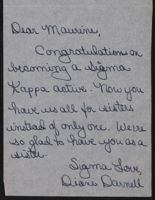 Dear Maurine,
Congratulations on
becoming a Sigma
Kappa active. Now you
have us all for sisters
instead of only one. We're
so glad to have you as a
sister.
Sigma Love,
Diane Darnell